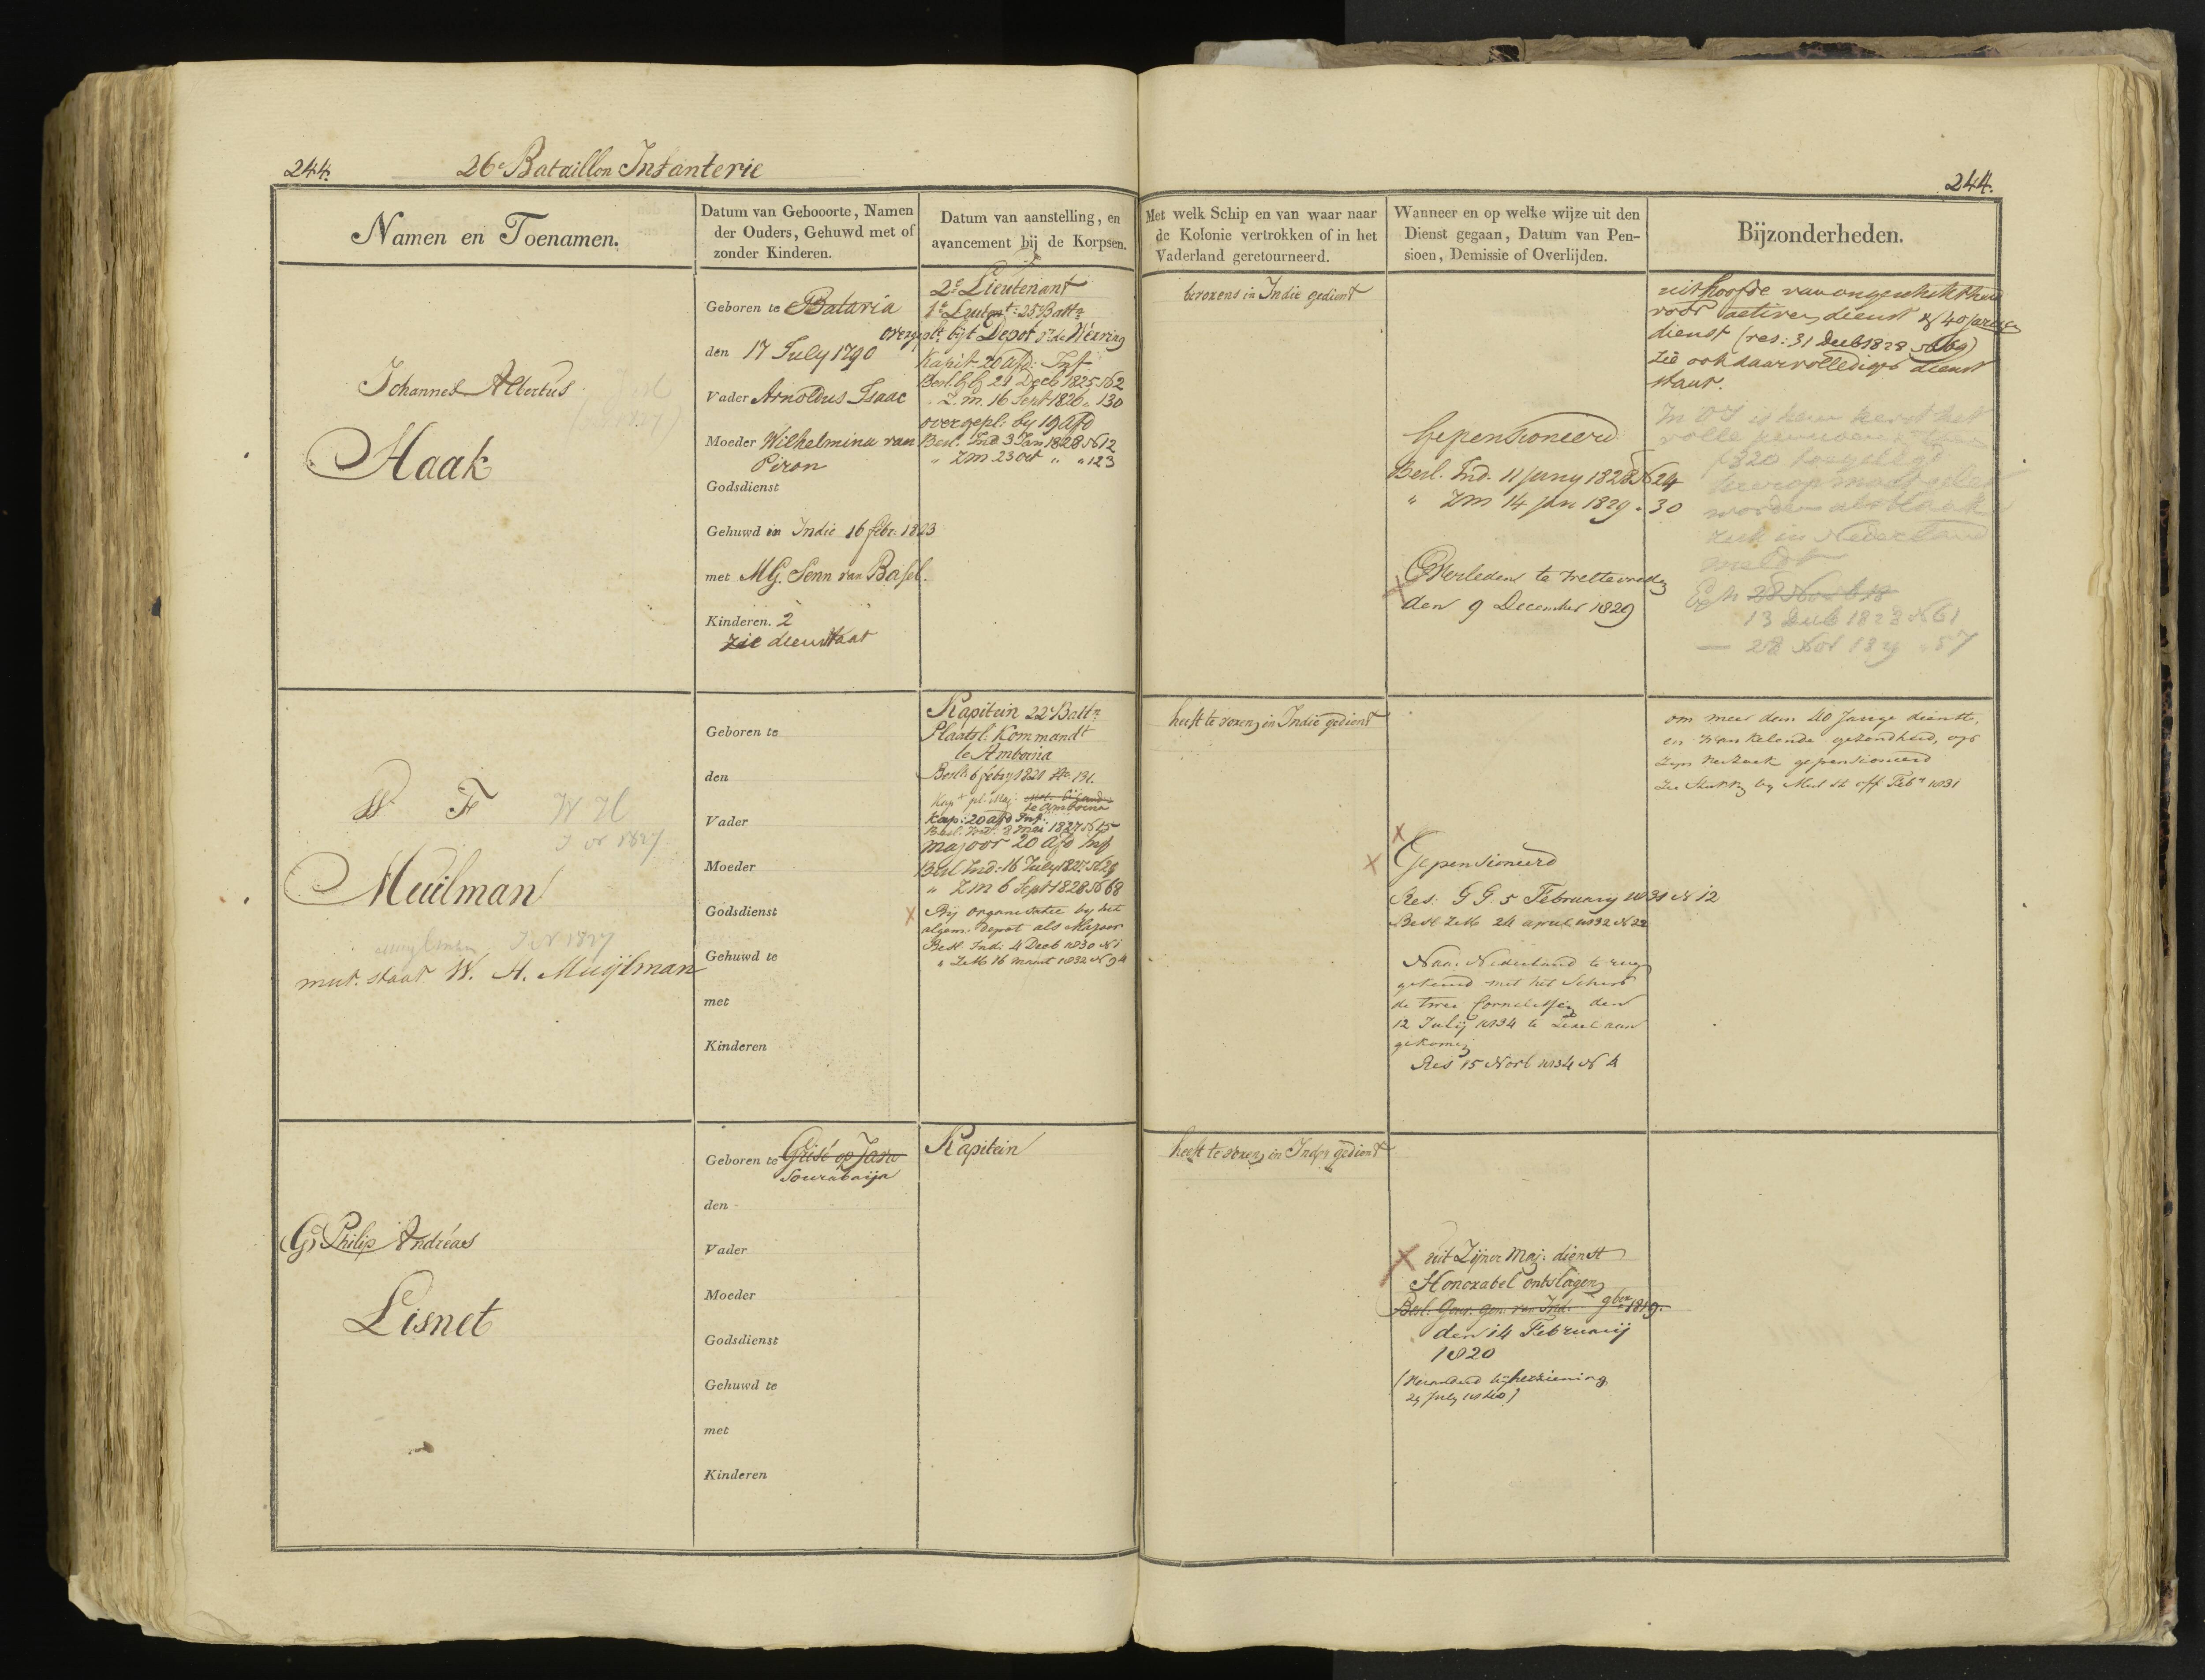 244.
26e Bataillon Infanterie
244.
Namen en Toenamen.
Datum van Gebooorte, Namen
der Ouders, Gehuwd met of
zonder Kinderen.
Datum van aanstelling, en
avancement bij de Korpsen.
Met welk Schip en van waar naar
de Kolonie vertrokken of in het
Vaderland geretourneerd.
Wanneer en op welke wijze uit den
Dienst gegaan, Datum van Pen-
sioen, Demissie of Overlijden.
Bijzonderheden.
Johannes Albertus
Haak
Geboren te Batavia
den 17 July 1790
Vader Arnoldus Isaac
Moeder Wilhelmina van
Piron
Godsdienst
Gehuwd in Indie 16 febr. 1823
met M G. Senn van Basel.
Kinderen. 2
zie dienstaat
2e Lieutenant
1e Lieutent: 25e Battn
overgeplt bijt Depot
Kapit. 20 afd: Inf
Besl. G G 29 Decb 1825 N 62
" Z. m. 16 Sept 1826 " 130
overgepl: by 19 afd
Besl. Ind 3 Jan 1828 N 12
" Z m 23 Oct " " 123
tevorens in Indie gedient
Gepensioneerd
Besl. Ind. 11 Juny 1828 N 24
" Z m 14 Jan 1829 " 30
Overleden te Weltevreden
den 9 December 1829
uithoofde van ongeschiktheid
voor activen dienst & 40 jarigen
dienst (res: 31 Decb 1828 N 69)
zie ook daar volledige dienst
staat.
In OI is hem
volle
1820 toegelegd
worden als Haak
zich in Nederland
meldt
28 Novb 18
13 Decb 1828 N 61
— 28 Nov 1829 " 57
W F W H
Meuilman
mut. staat W. H. Muijlman
Geboren te
den
Vader
Moeder
Godsdienst
Gehuwd te
met
Kinderen
Kapitein 22e Battn
Plaatsl: Kommandt
te Amboina
Besl: 6 feby 1821 No 131.
Kapt pl. Maj:
te Amboina
Kap: 20 afd Inf:
Besl: Ind: 8 Mei 1827 N 15
majoor 20 afd Inf
Besl Ind: 16 July 1827 N 29
" Z M 6 Sept 1828 N 68
Bij organisatie by het
algem. Depot als Majoor
Besl. Ind: 4 Decb 1830 N 1
" Z M 16 maart 1832 N 94
heeft te voren in Indie gedient
Gepensioneerd
Res: G G 5 February 1831 N 12
Besl Z M 24 april 1832 N 22
Naar Nederland terug
gekeerd met het Schip
de twee Cornelissen den
12 Julij 1834 te Texel aan
gekomen
Res 15 Novb 1834 N 4
om meer dan 40 Jarige dienst,
en wankelende gezondheid, op
zijn verzoek gepensioneerd
by Mut St off Feby 1831
G. Philip Andréas
Lisnet
Geboren te Grisé op Java
Sourabaija
den
Vader
Moeder
Godsdienst
Gehuwd te
met
Kinderen
Kapitein
heeft te voren in Indie gedient
uit Zijner Maj: dienst
Honorabel ontslagen
Besl. Gouv. Gen. van Ind. 9ber 1819.
den 14 Februarij
1820
(Veranderd bij herziening
29 July 1840)